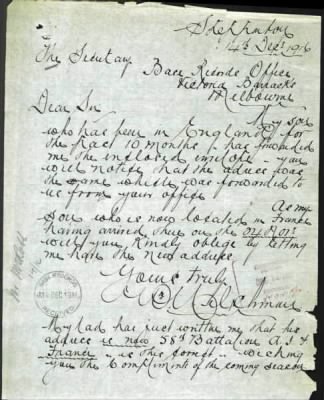 Shepparton
14th Dec 1916
The Secretary
Base Records Office
Victoria Barracks
Melbourne
Dear Sir
My son
who has been in England for
the past 10 months has forwarded
me the inclosed envelope - you
will notice that the address was
the same which was forwarded to
us from your office
As my
son who is now located in France
having arrived there on the
will you kindly oblige by letting
me have the new address
Yours truly
My lad has just written me that his
address is now 58th Battalion A.I.F
France - is this correct - wishing
you the compliments of the coming season